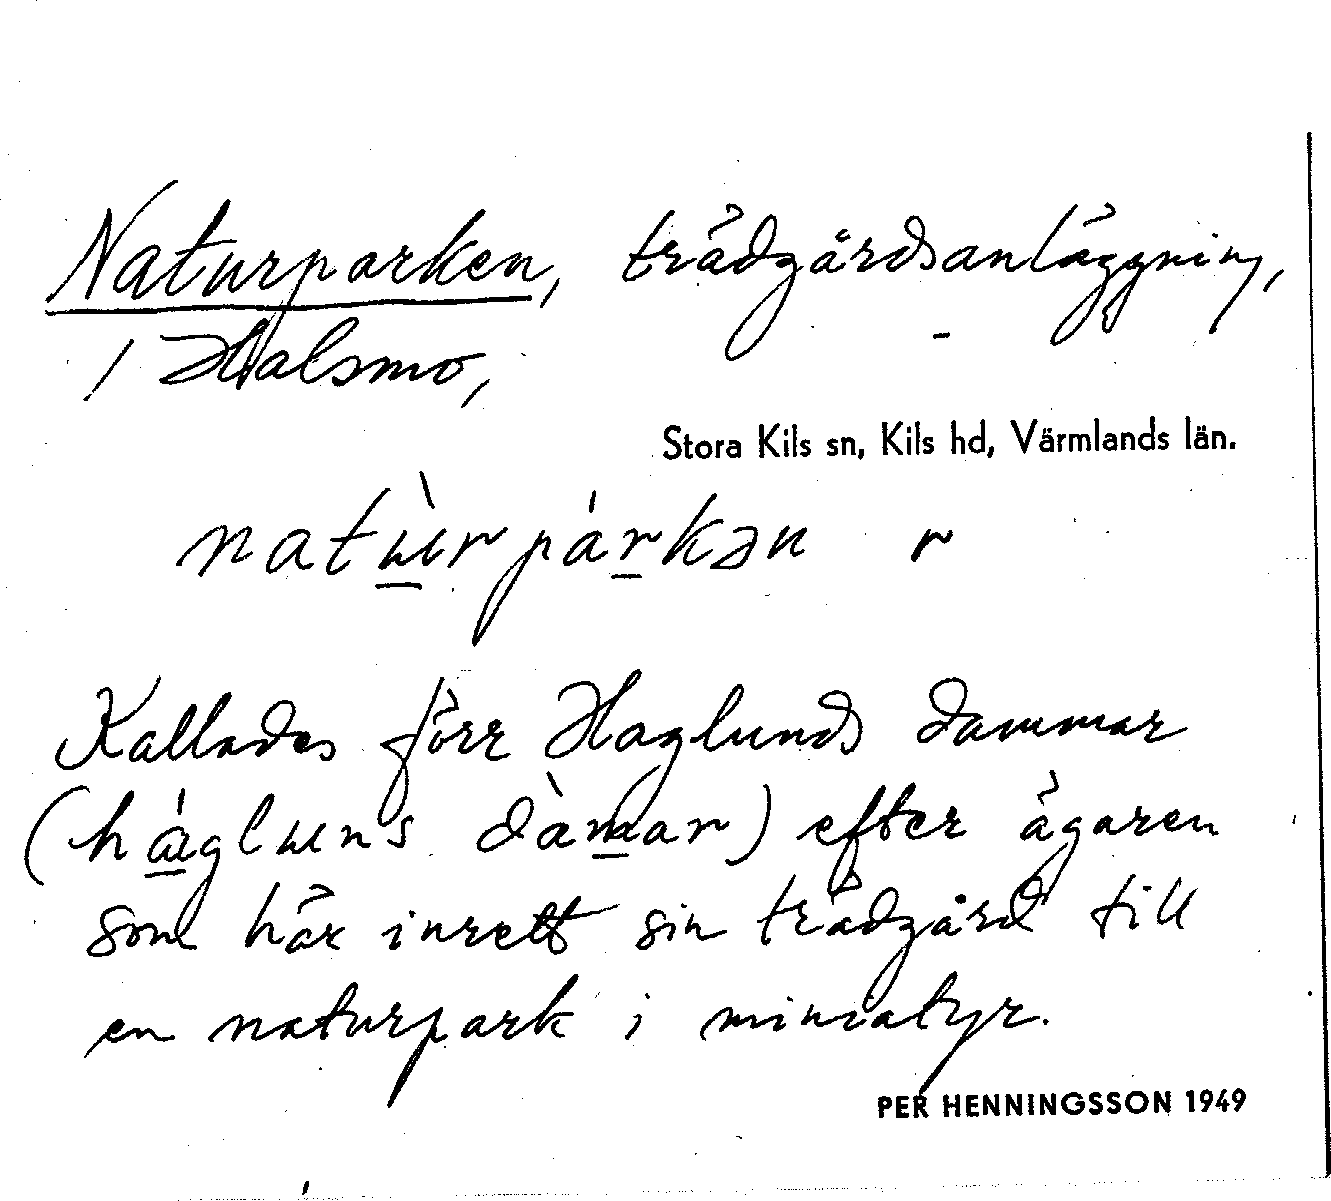 Naturparken, trädgårdsanläggning,
i Halsmo,
Stora Kils sn, Kils hd, Värmlands län.
natɯ̀rpárkən r
Kallades förr Haglunds dammar
(háglɯns dàmar) efter ägaren
som här inrett sin trädgård till
en naturpark i miniatyr.
PER HENNINGSSON 1949